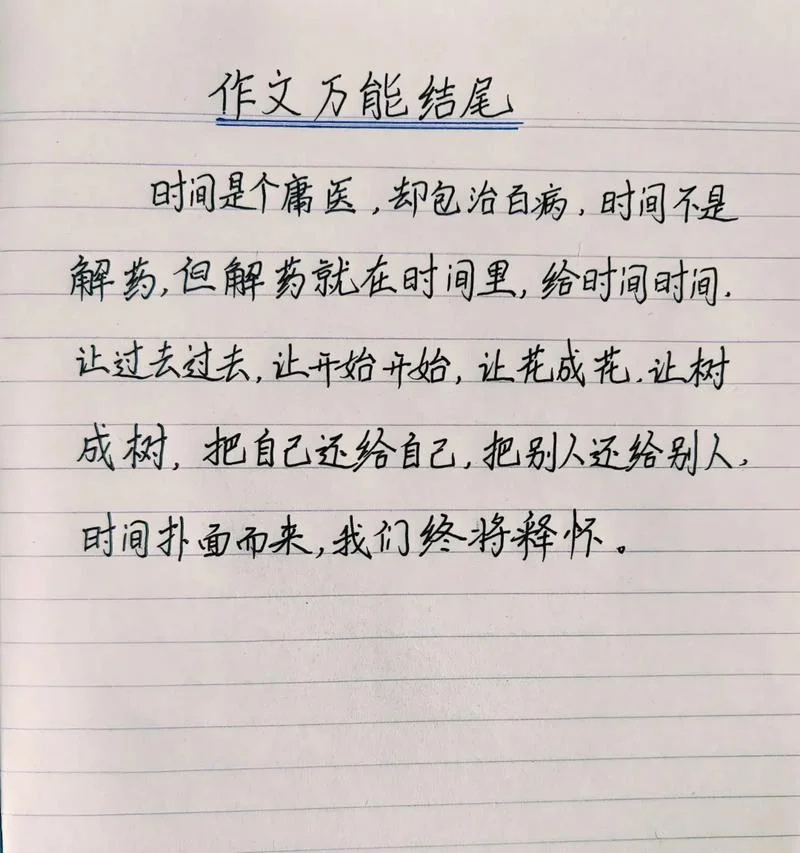 作文万能结尾
时间是个庸医,却包治百病,时间不是
解药,但解药就在时间里,给时间时间.
让过去过去,让开始开始,让花成花.让树
成树,把自己还给自己,把别人还给别人,
时间扑面而来,我们终将释怀。